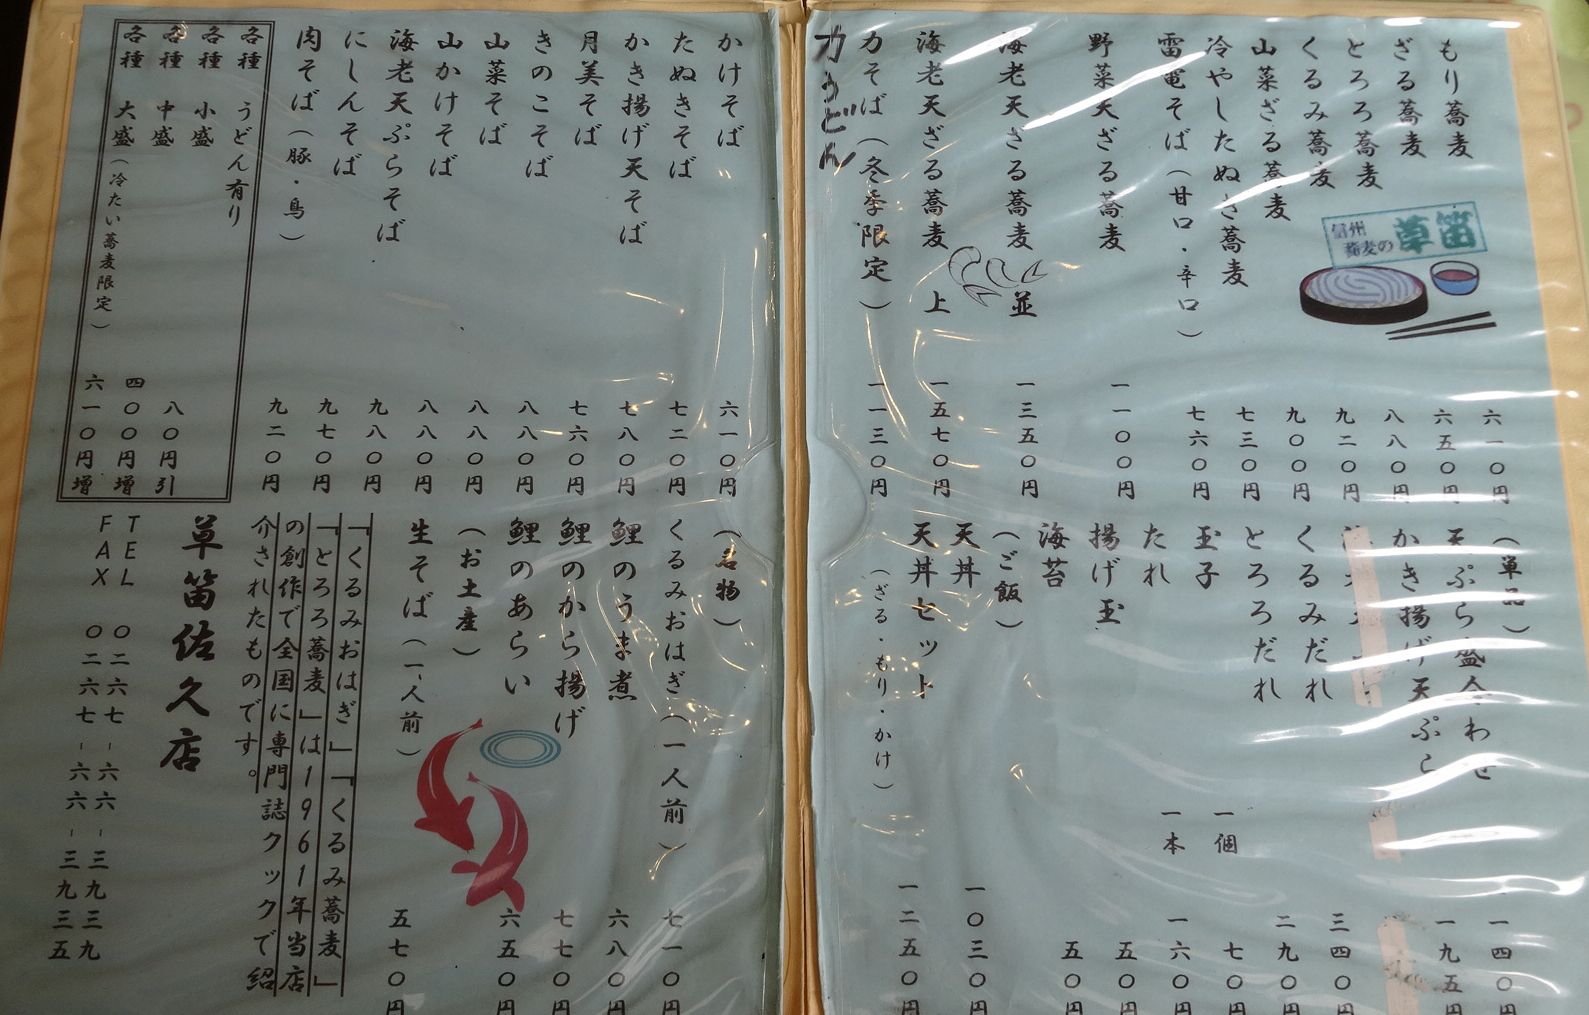 もり蕎麦 六一〇円
ざる蕎麦 六五〇円
とろろ蕎麦 八八〇円
くるみ蕎麦 九二〇円
山菜ざる蕎麦 九〇〇円
冷やしたぬき蕎麦 七三〇円
雷電そば(甘口・辛口) 七六〇円
野菜天ざる蕎麦 一一〇〇円
海老天ざる蕎麦 並 一三五〇円
海老天ざる蕎麦 上 一五七〇円
力そば(冬季限定) 一一三〇円
力うどん
信州
蕎麦の草笛
(単品)
天ぷら盛合わせ 一四〇円
かき揚げ天ぷら 一九五円
くるみだれ 三四〇円
とろろだれ 二九〇円
玉子 一個 七〇円
たれ 一本 一六〇円
揚げ玉 五〇円
海苔 五〇円
(ご飯)
天丼 一〇三〇円
天丼セット 一二五〇円
(ざる・もり・かけ)
かけそば 六一〇円
たぬきそば 七二〇円
かき揚げ天そば 七八〇円
月美そば 七六〇円
きのこそば 八八〇円
山菜そば 八八〇円
山かけそば 八八〇円
海老天ぷらそば 九八〇円
にしんそば 九七〇円
肉そば(豚・鳥) 九二〇円
各種 うどん有り
各種 小盛 八〇円引
各種 中盛 四〇〇円増
各種 大盛(冷たい蕎麦限定) 六一〇円増
(名物)
くるみおはぎ(一人前) 七一〇円
鯉のうま煮 六八〇円
鯉のから揚げ 七七〇円
鯉のあらい 六五〇円
(お土産)
生そば(一人前) 五七〇円
「くるみおはぎ」「くるみ蕎麦」
「とろろ蕎麦」は1961年当店
の創作で全国に専門誌クックで紹
介されたものです。
草笛佐久店
TEL 〇二六七-六六-三九三九
FAX 〇二六七-六六-三九三五